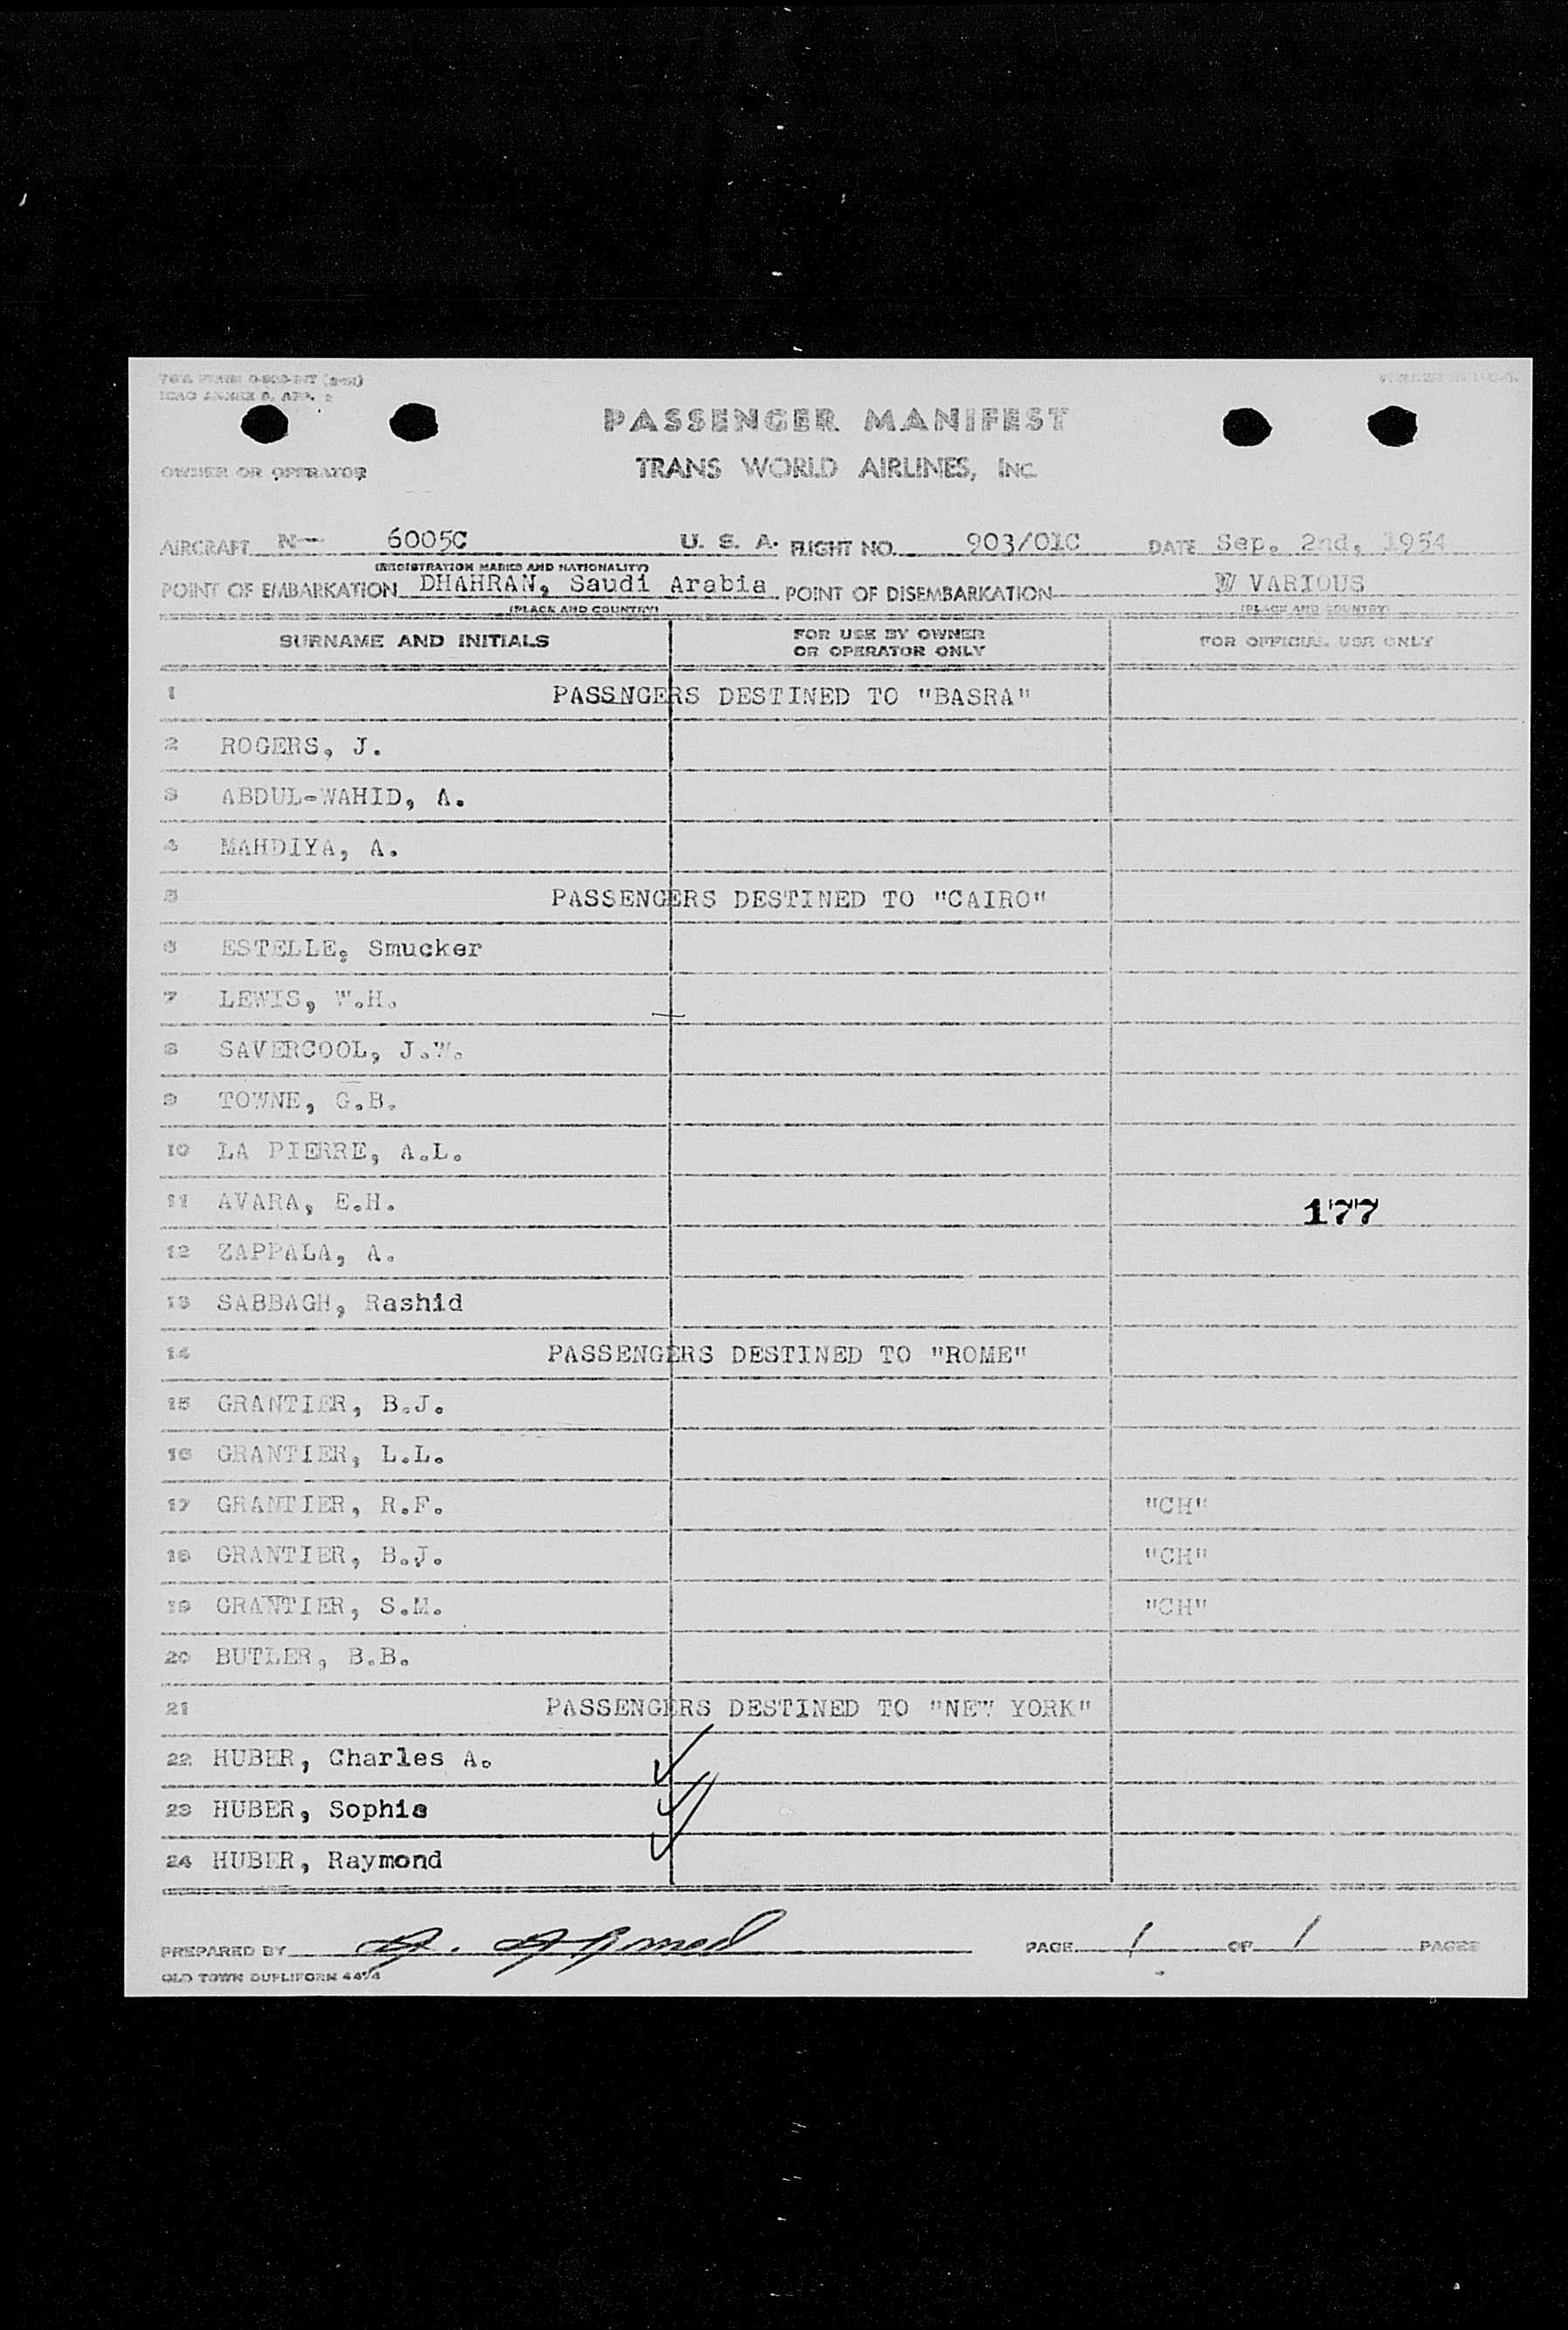 ICAO ANNEX 9, APP. 2
PASSENGER MANIFEST
OWNER OR OPERATOR TRANS WORLD AIRLINES, INC.
AIRCRAFT N— 6005C U. S. A. FLIGHT NO. 903/01C DATE Sep. 2nd, 1954
(REGISTRATION MARKS AND NATIONALITY)
POINT OF EMBARKATION DHAHRAN, Saudi Arabia POINT OF DISEMBARKATION VARIOUS
(PLACE AND COUNTRY) (PLACE AND COUNTRY)
SURNAME AND INITIALS FOR USE BY OWNER OR OPERATOR ONLY FOR OFFICIAL USE ONLY
1 PASSNGERS DESTINED TO "BASRA"
2 ROGERS, J.
3 ABDUL-WAHID, A.
4 MAHDIYA, A.
5 PASSENGERS DESTINED TO "CAIRO"
6 ESTELLE, Smucker
7 LEWIS, W.H.
8 SAVERCOOL, J.W.
9 TOWNE, G.B.
10 LA PIERRE, A.L.
11 AVARA, E.H. 177
12 ZAPPALA, A.
13 SABBAGH, Rashid
14 PASSENGERS DESTINED TO "ROME"
15 GRANTIER, B.J.
16 GRANTIER, L.L.
17 GRANTIER, R.F. "CH"
18 GRANTIER, B.J. "CH"
19 GRANTIER, S.M. "CH"
20 BUTLER, B.B.
21 PASSENGERS DESTINED TO "NEW YORK"
22 HUBER, Charles A.
23 HUBER, Sophie
24 HUBER, Raymond
PREPARED BY A. Ahmed PAGE 1 OF 1 PAGES
OLD TOWN DUPLIFORM 4474